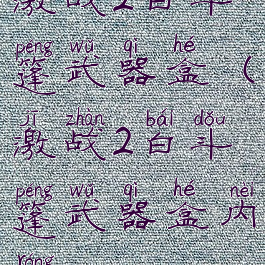 激战2白斗
péng wǔ qì hé
篷武器盒(
jī zhàn bái dǒu
激战2白斗
péng wǔ qì hé nèi
篷武器盒内
róng